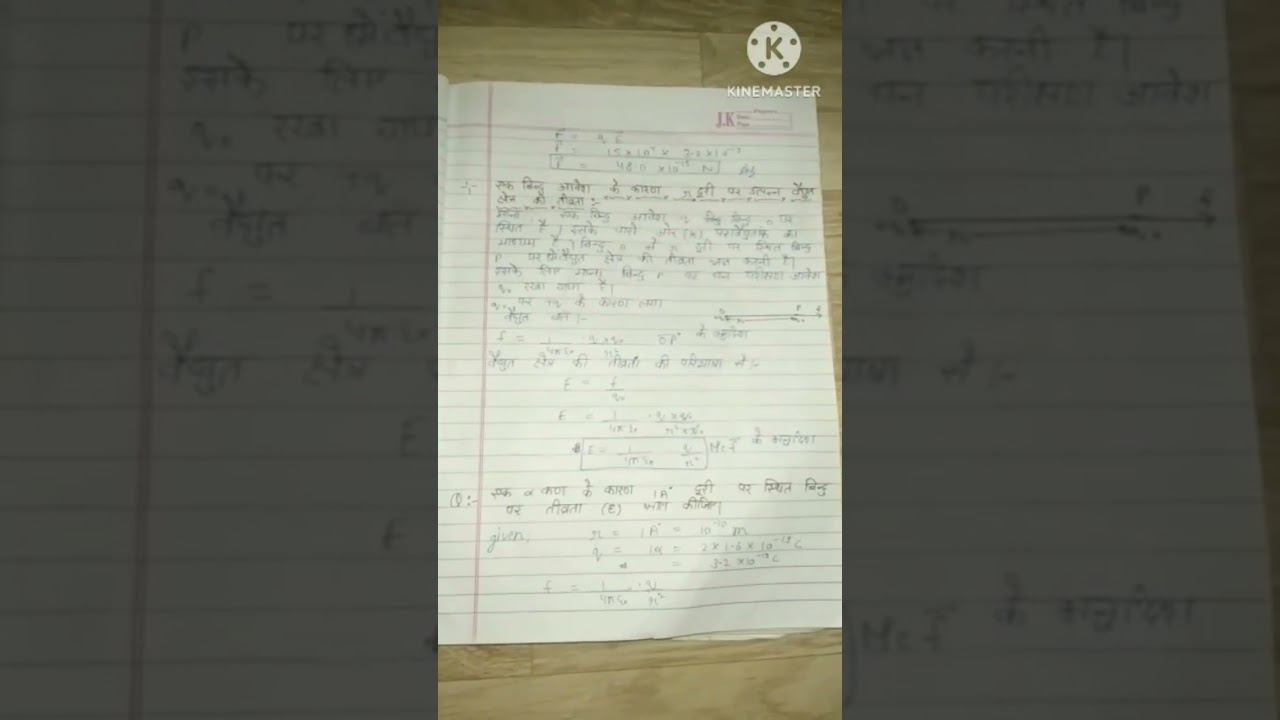 KINEMASTER
J.K
F = q E
= 15 × 10² ×
= 48.0 × 10⁻¹⁵ N
एक बिन्दु आवेश के कारण r दूरी पर उत्पन्न वैद्युत
क्षेत्र की तीव्रता :-
एक बिन्दु आवेश q बिन्दु O पर
स्थित है। इसके चारो ओर (K) परावैद्युतांक का
माध्यम है। बिन्दु O से r दूरी पर स्थित बिन्दु
P पर वैद्युत क्षेत्र की तीव्रता ज्ञात करनी है।
इसके लिए माना बिन्दु P पर धन परीक्षण आवेश
q₀ रखा गया है।
q₀ पर +q के कारण लगा
वैद्युत बल :-
O P
f = 1/4πε₀ · q×q₀/r² OP के अनुदिश
वैद्युत क्षेत्र की तीव्रता की परिभाषा से :-
E = f/q₀
E = 1/4πε₀ · q×q₀/r²×q₀
E = 1/4πε₀ q/r² के अनुदिश
Q:- एक α कण के कारण 1A° दूरी पर स्थित बिन्दु
पर तीव्रता (E) ज्ञात कीजिए।
given, r = 1A° = 10⁻¹⁰ m
q = 1α = 2×1.6×10⁻¹⁹ C
= 3.2×10⁻¹⁹ C
f = 1/4πε₀ · q/r²